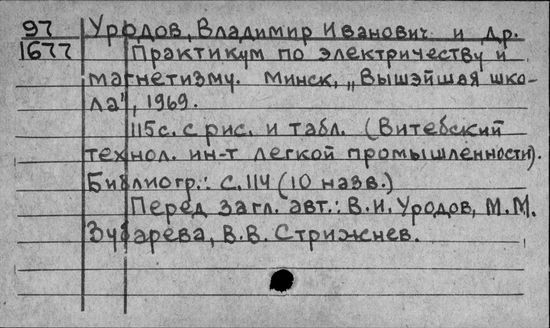 97 Уродов, Владимир Иванович и др.
1677 Практикум по электричеству и
магнетизму. Минск, „Вышэйшая шко-
ла", 1969.
115с. с рис. и табл. (Витебский
технол. ин-т легкой промышленности).
Библиогр.: с.114 (10 назв.)
Перед загл. авт.: В.И. Уродов, М.М.
Зубарева, В.В. Стрижнев.